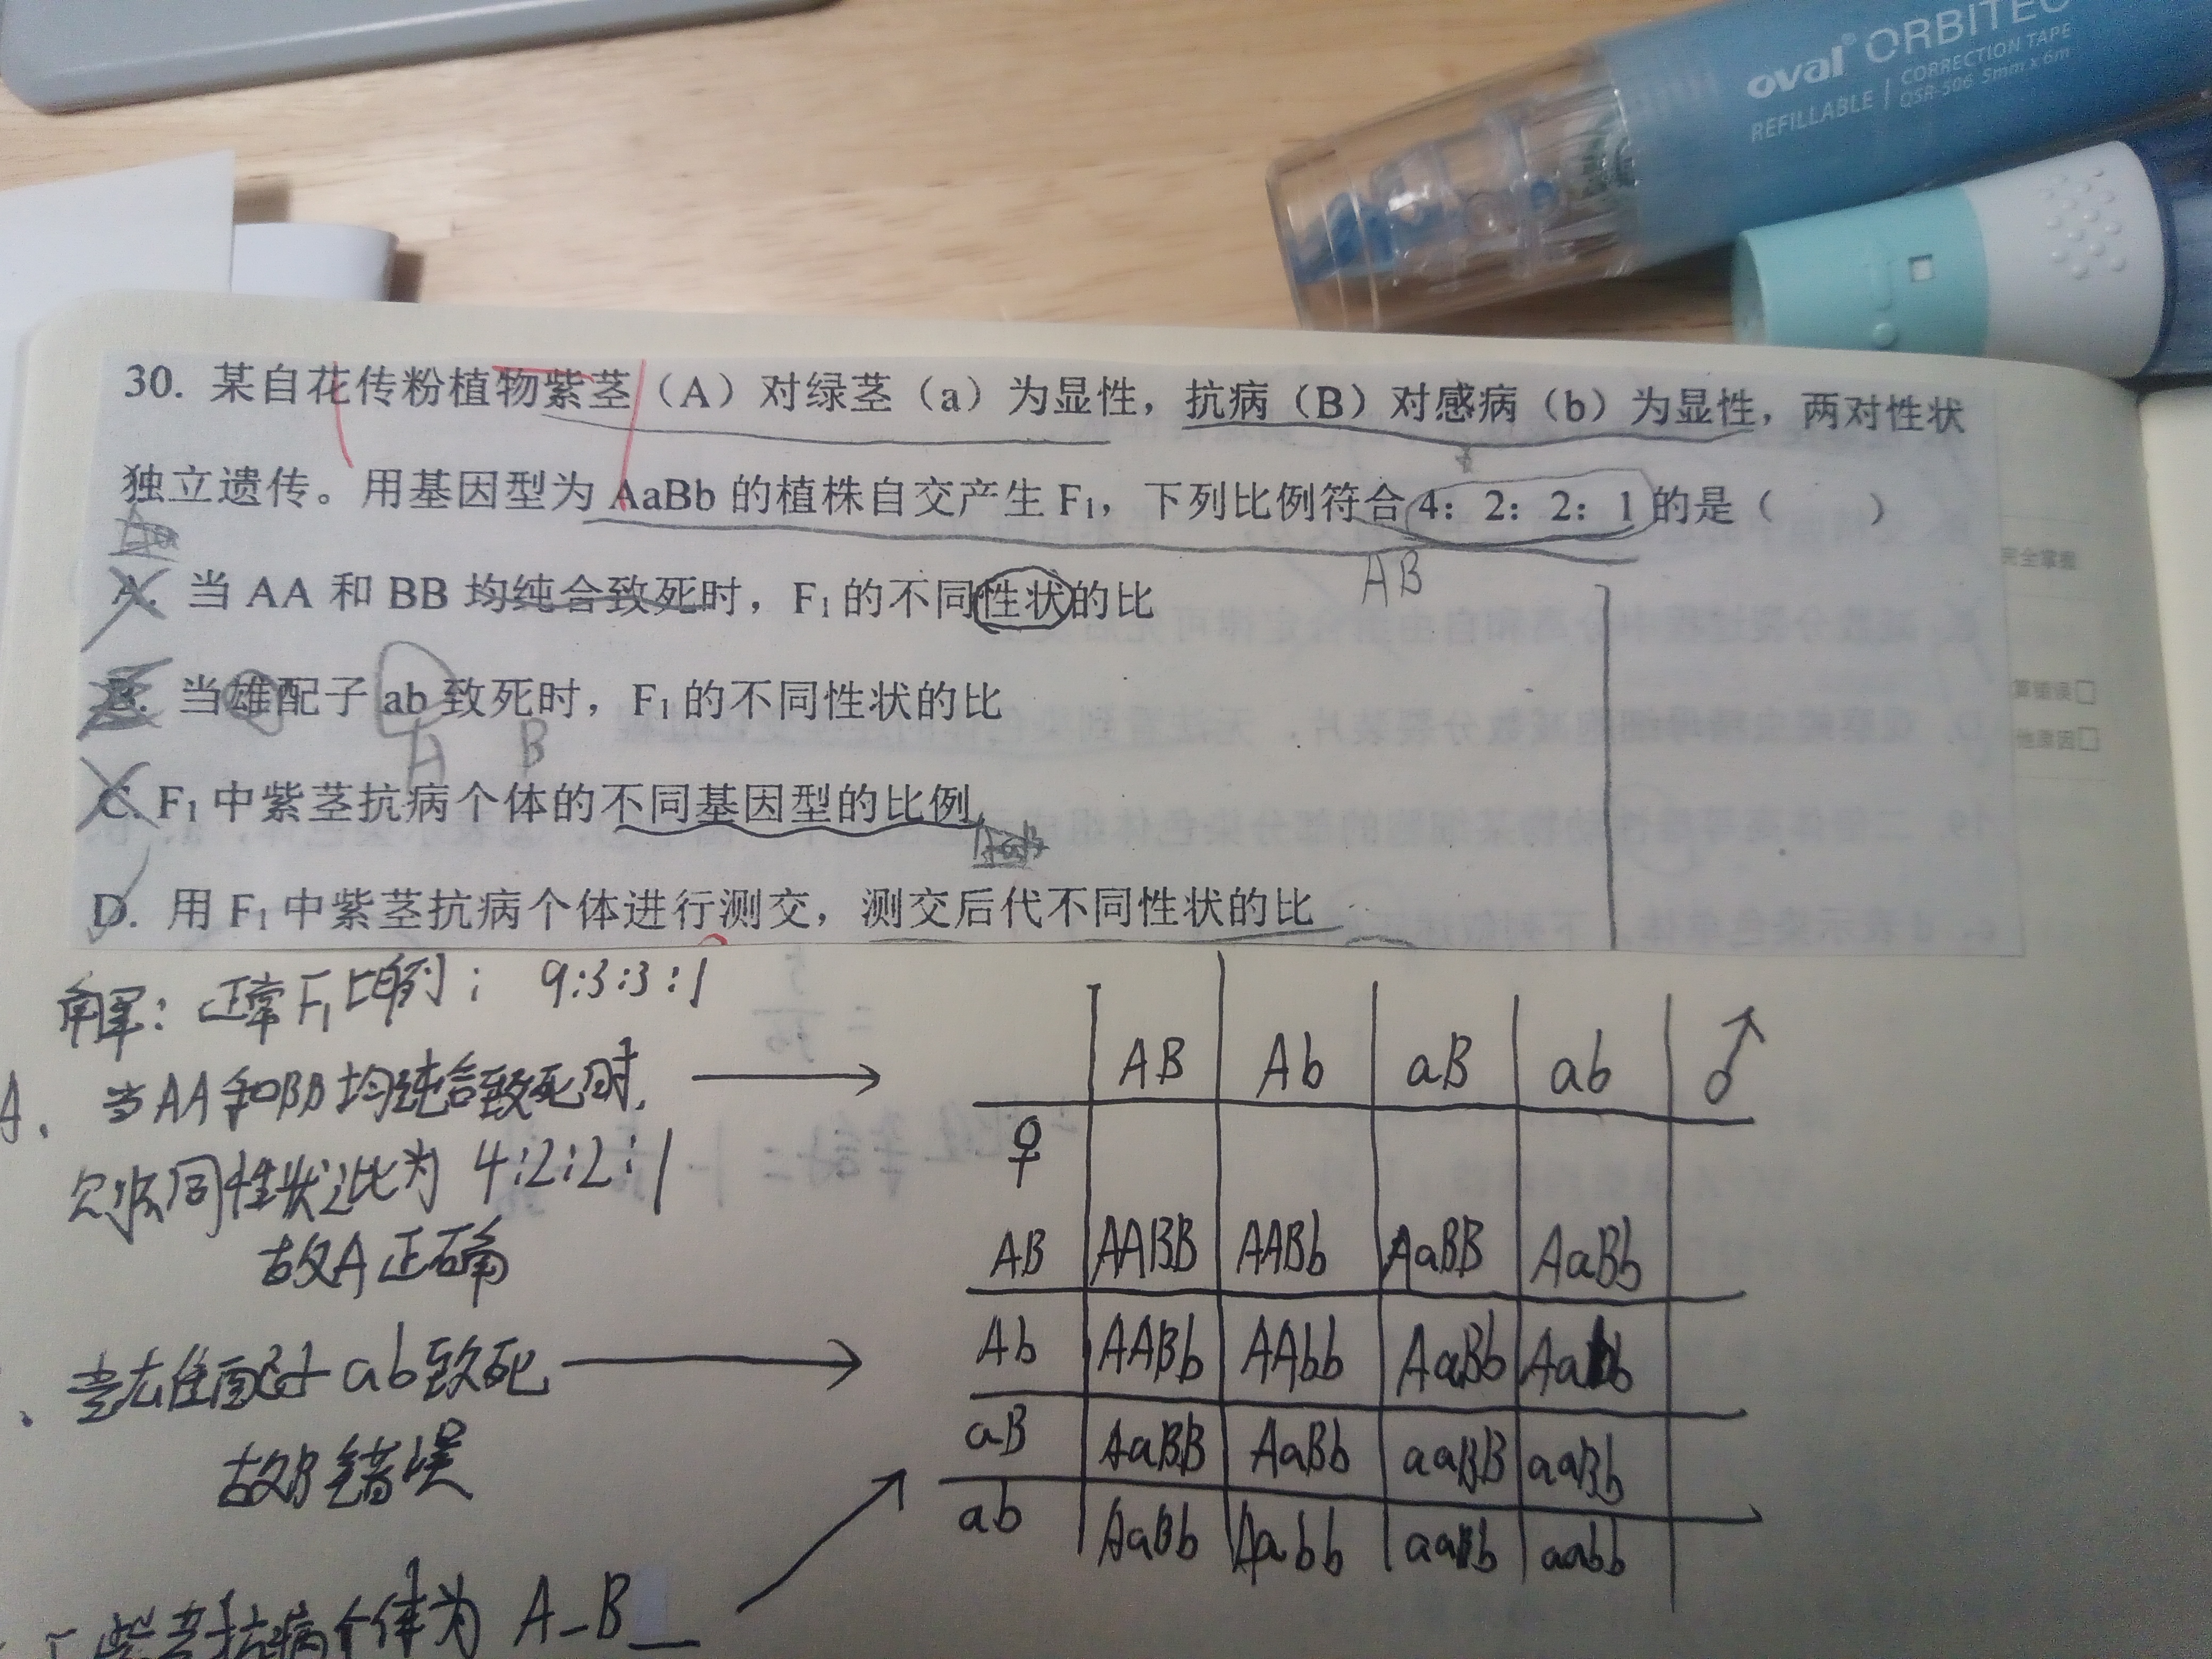 oval ORBITEC
CORRECTION TAPE
REFILLABLE | QSR-506 5mm x 6m
30. 某自花传粉植物紫茎（A）对绿茎（a）为显性，抗病（B）对感病（b）为显性，两对性状
独立遗传。用基因型为 AaBb 的植株自交产生 F₁，下列比例符合 4：2：2：1 的是（　　）
AB
A. 当 AA 和 BB 均纯合致死时，F₁ 的不同性状的比
B. 当雄配子 ab 致死时，F₁ 的不同性状的比
A B
C. F₁ 中紫茎抗病个体的不同基因型的比例
D. 用 F₁ 中紫茎抗病个体进行测交，测交后代不同性状的比
解：正常F₁比例：9:3:3:1
A. 当AA和BB均纯合致死时，
不同性状之比为 4:2:2:1
故A正确
当雄配子ab致死
故B错误
紫茎抗病个体为 A_B_
AB Ab aB ab ♂
♀
AB AABB AABb AaBB AaBb
Ab AABb AAbb AaBb Aabb
aB AaBB AaBb aaBB aaBb
ab AaBb Aabb aaBb aabb